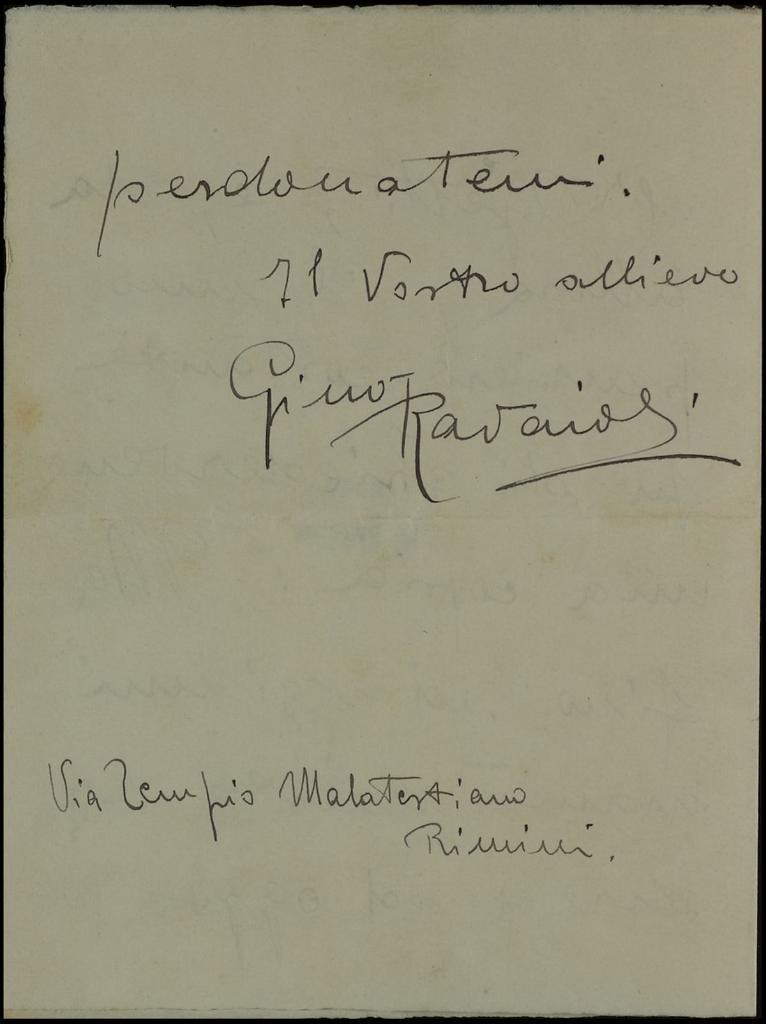 perdonatemi.
Il Vostro allievo
Gino Ravaioli
Via Tempio Malatestiano
Rimini.